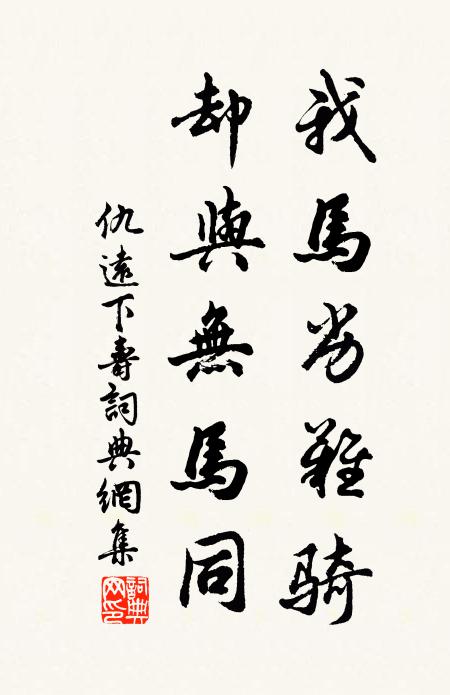 我馬劣難騎
却與無馬同
仇遠下壽詞典網集
詞典网印